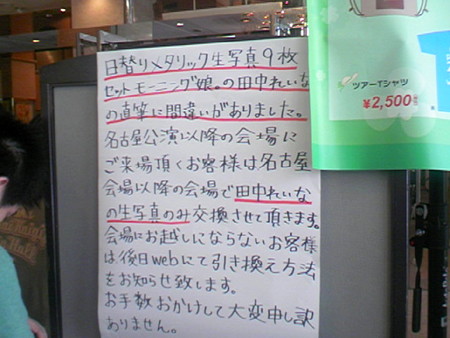 日替りメタリック生写真9枚
セットモーニング娘。の田中れいな
の直筆に間違いがありました。
名古屋公演以降の会場に
ご来場頂くお客様は名古屋
会場以降の会場で田中れいな
の生写真のみ交換させて頂きます。
会場にお越しにならないお客様
は後日webにて引き換え方法
をお知らせ致します。
お手数おかけして大変申し訳
ありません。
ツアーTシャツ
¥2,500